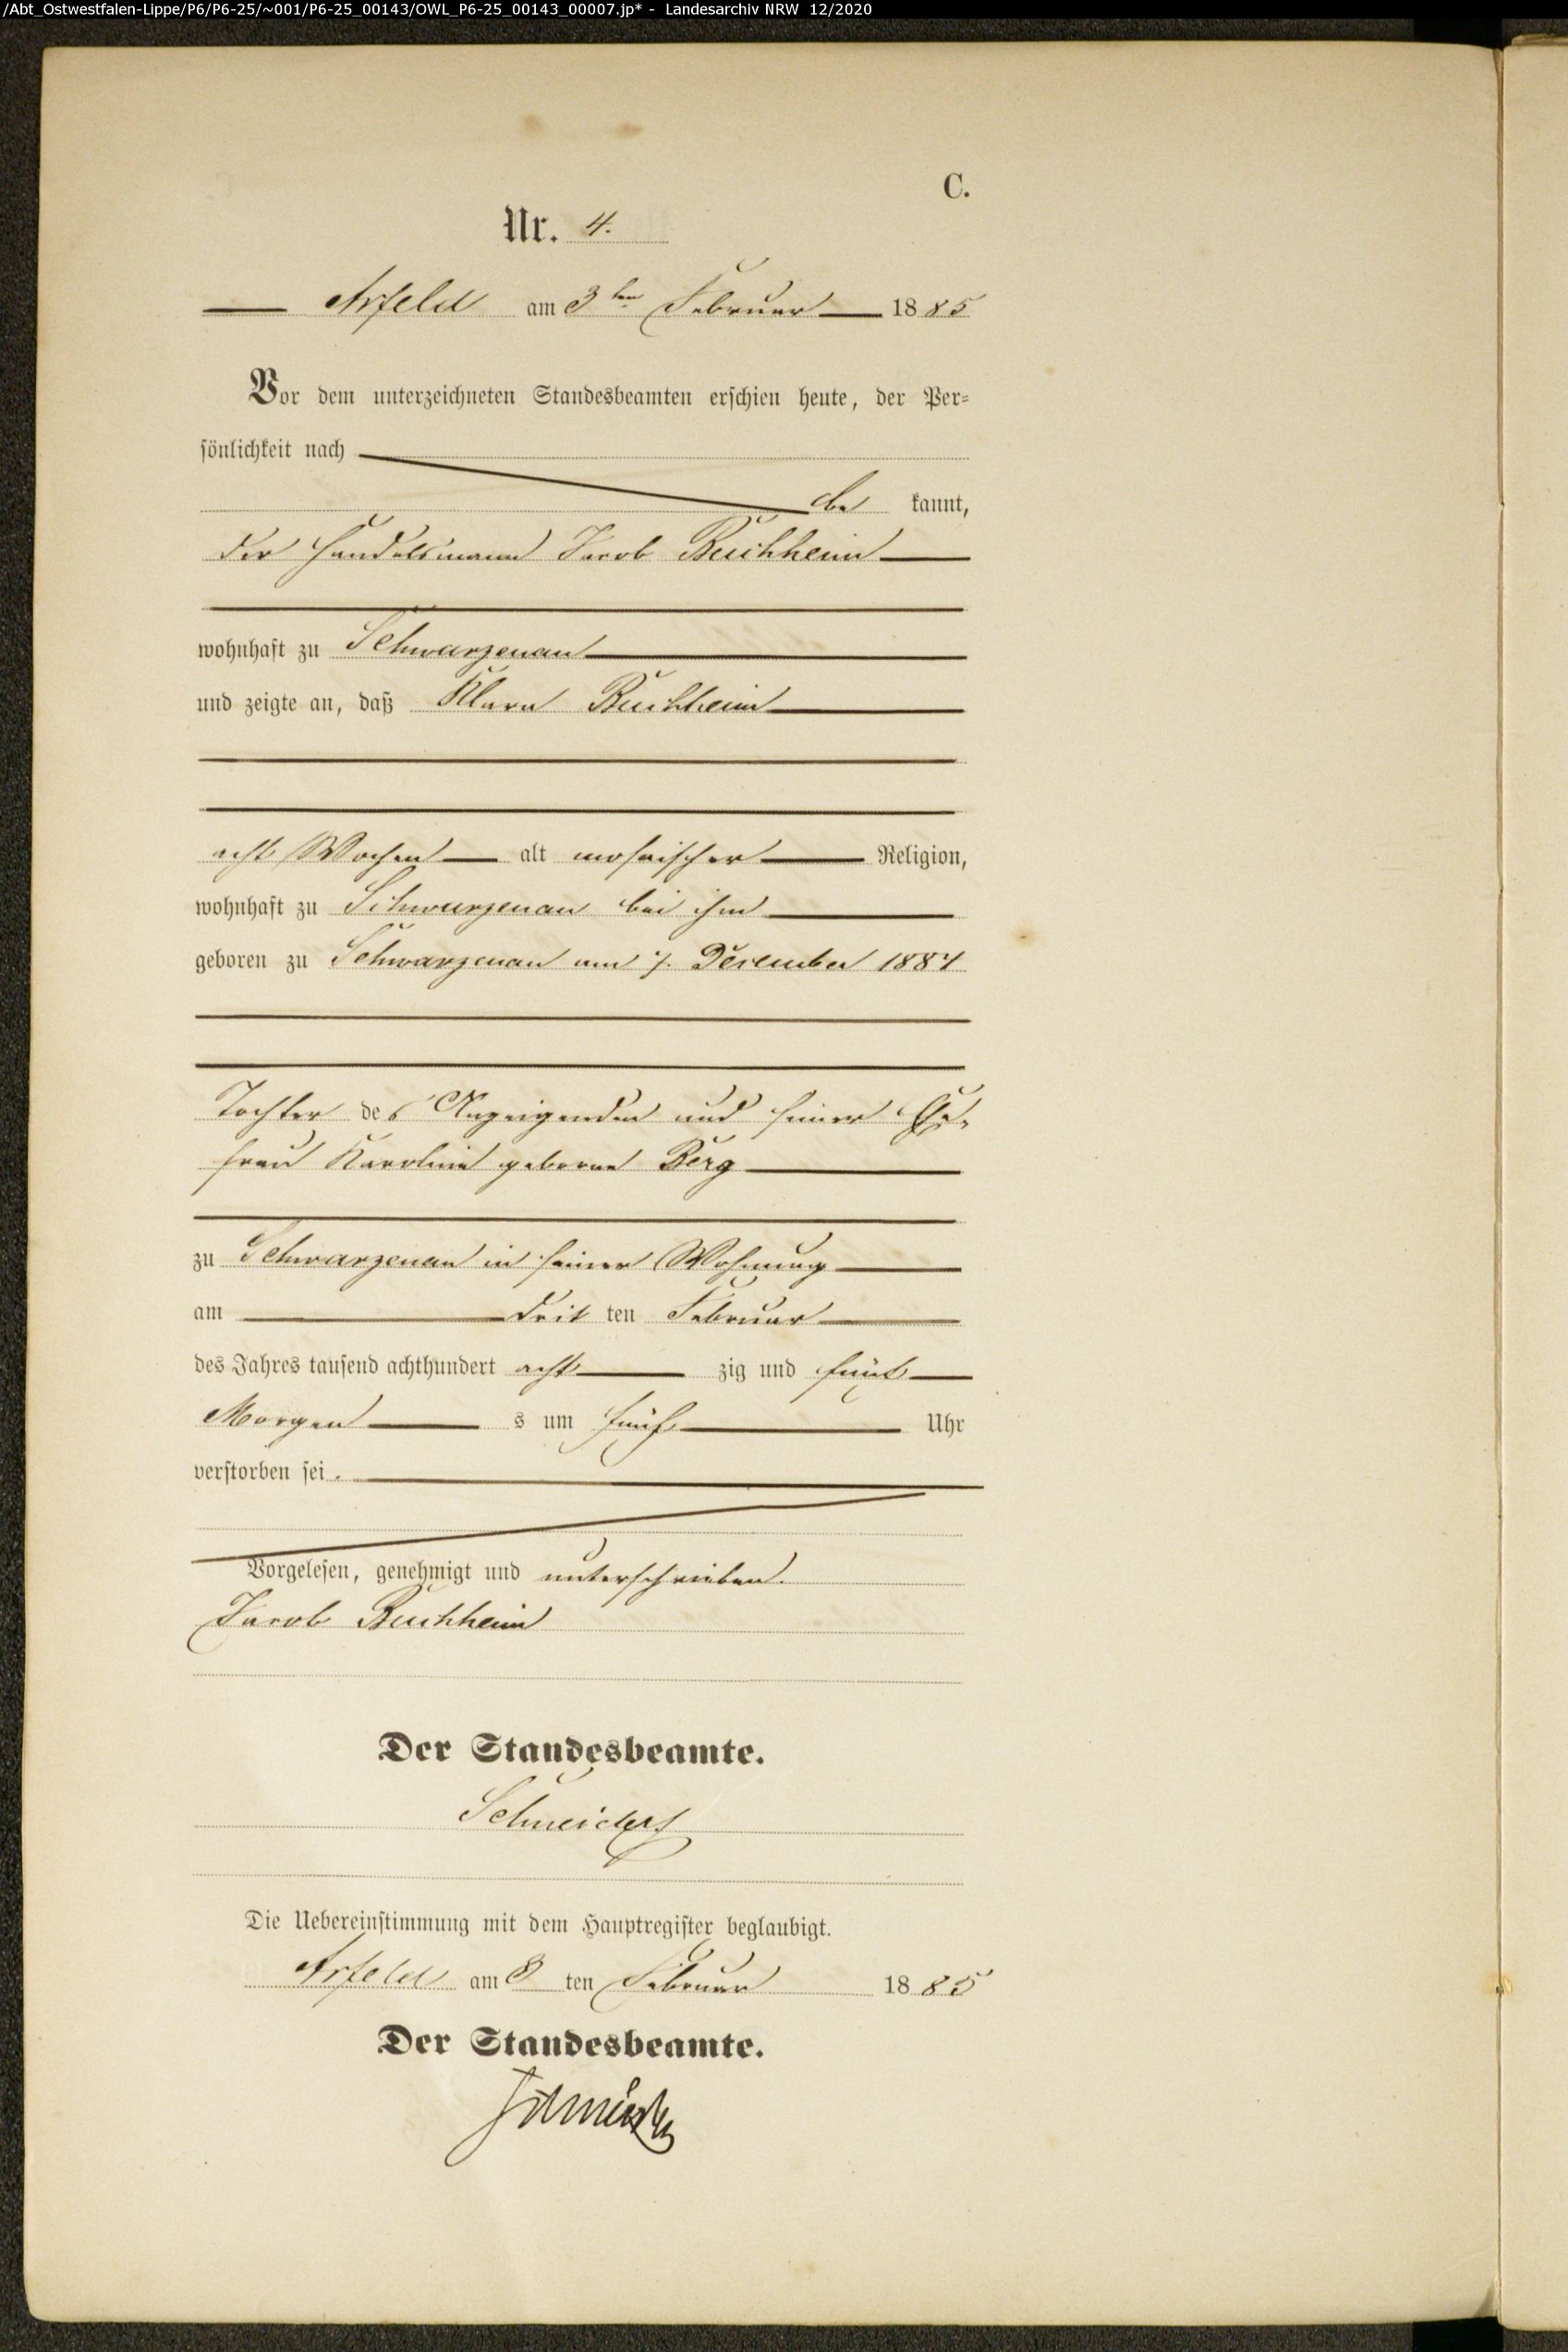 /Abt_Ostwestfalen-Lippe/P6/P6-25/~001/P6-25_00143/OWL_P6-25_00143_00007.jp* - Landesarchiv NRW 12/2020
C.
Nr. 4.
Arfeld am 3ten Februar 1885
Vor dem unterzeichneten Standesbeamten erschien heute, der Per-
sönlichkeit nach
be kannt,
der Handelsmann Jacob Buchheim
wohnhaft zu Schwarzenau
und zeigte an, daß Klara Buchheim
acht Wochen alt mosaischer Religion,
wohnhaft zu Schwarzenau bei ihm
geboren zu Schwarzenau am 7. December 1884
Tochter des Anzeigenden und seiner Ehe-
frau Karoline geborne Berg
zu Schwarzenau in seiner Wohnung
am drit ten Februar
des Jahres tausend achthundert acht zig und fünf
Morgen s um fünf Uhr
verstorben sei.
Vorgelesen, genehmigt und unterschrieben.
Jacob Buchheim
Der Standesbeamte.
Die Uebereinstimmung mit dem Hauptregister beglaubigt.
Arfeld am 3 ten Februar 1885
Der Standesbeamte.